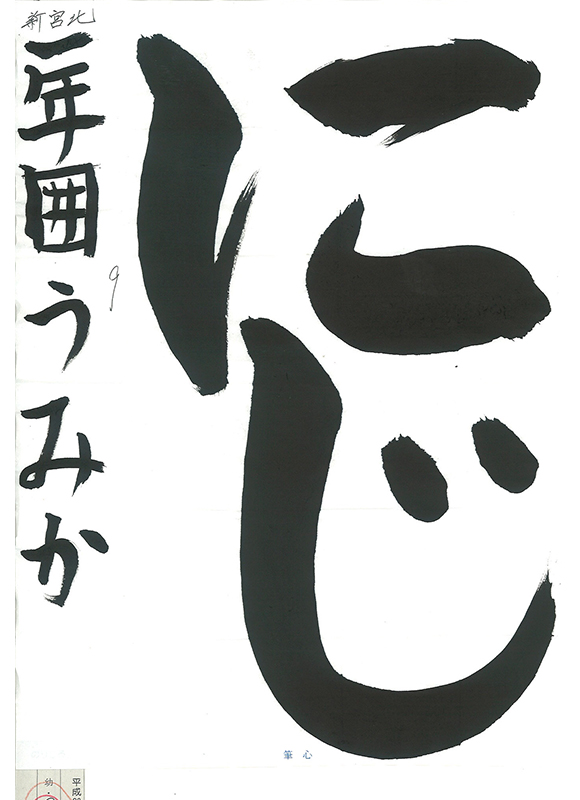 にじ
新宮北
一年囲うみか
9
筆心
平成
幼・